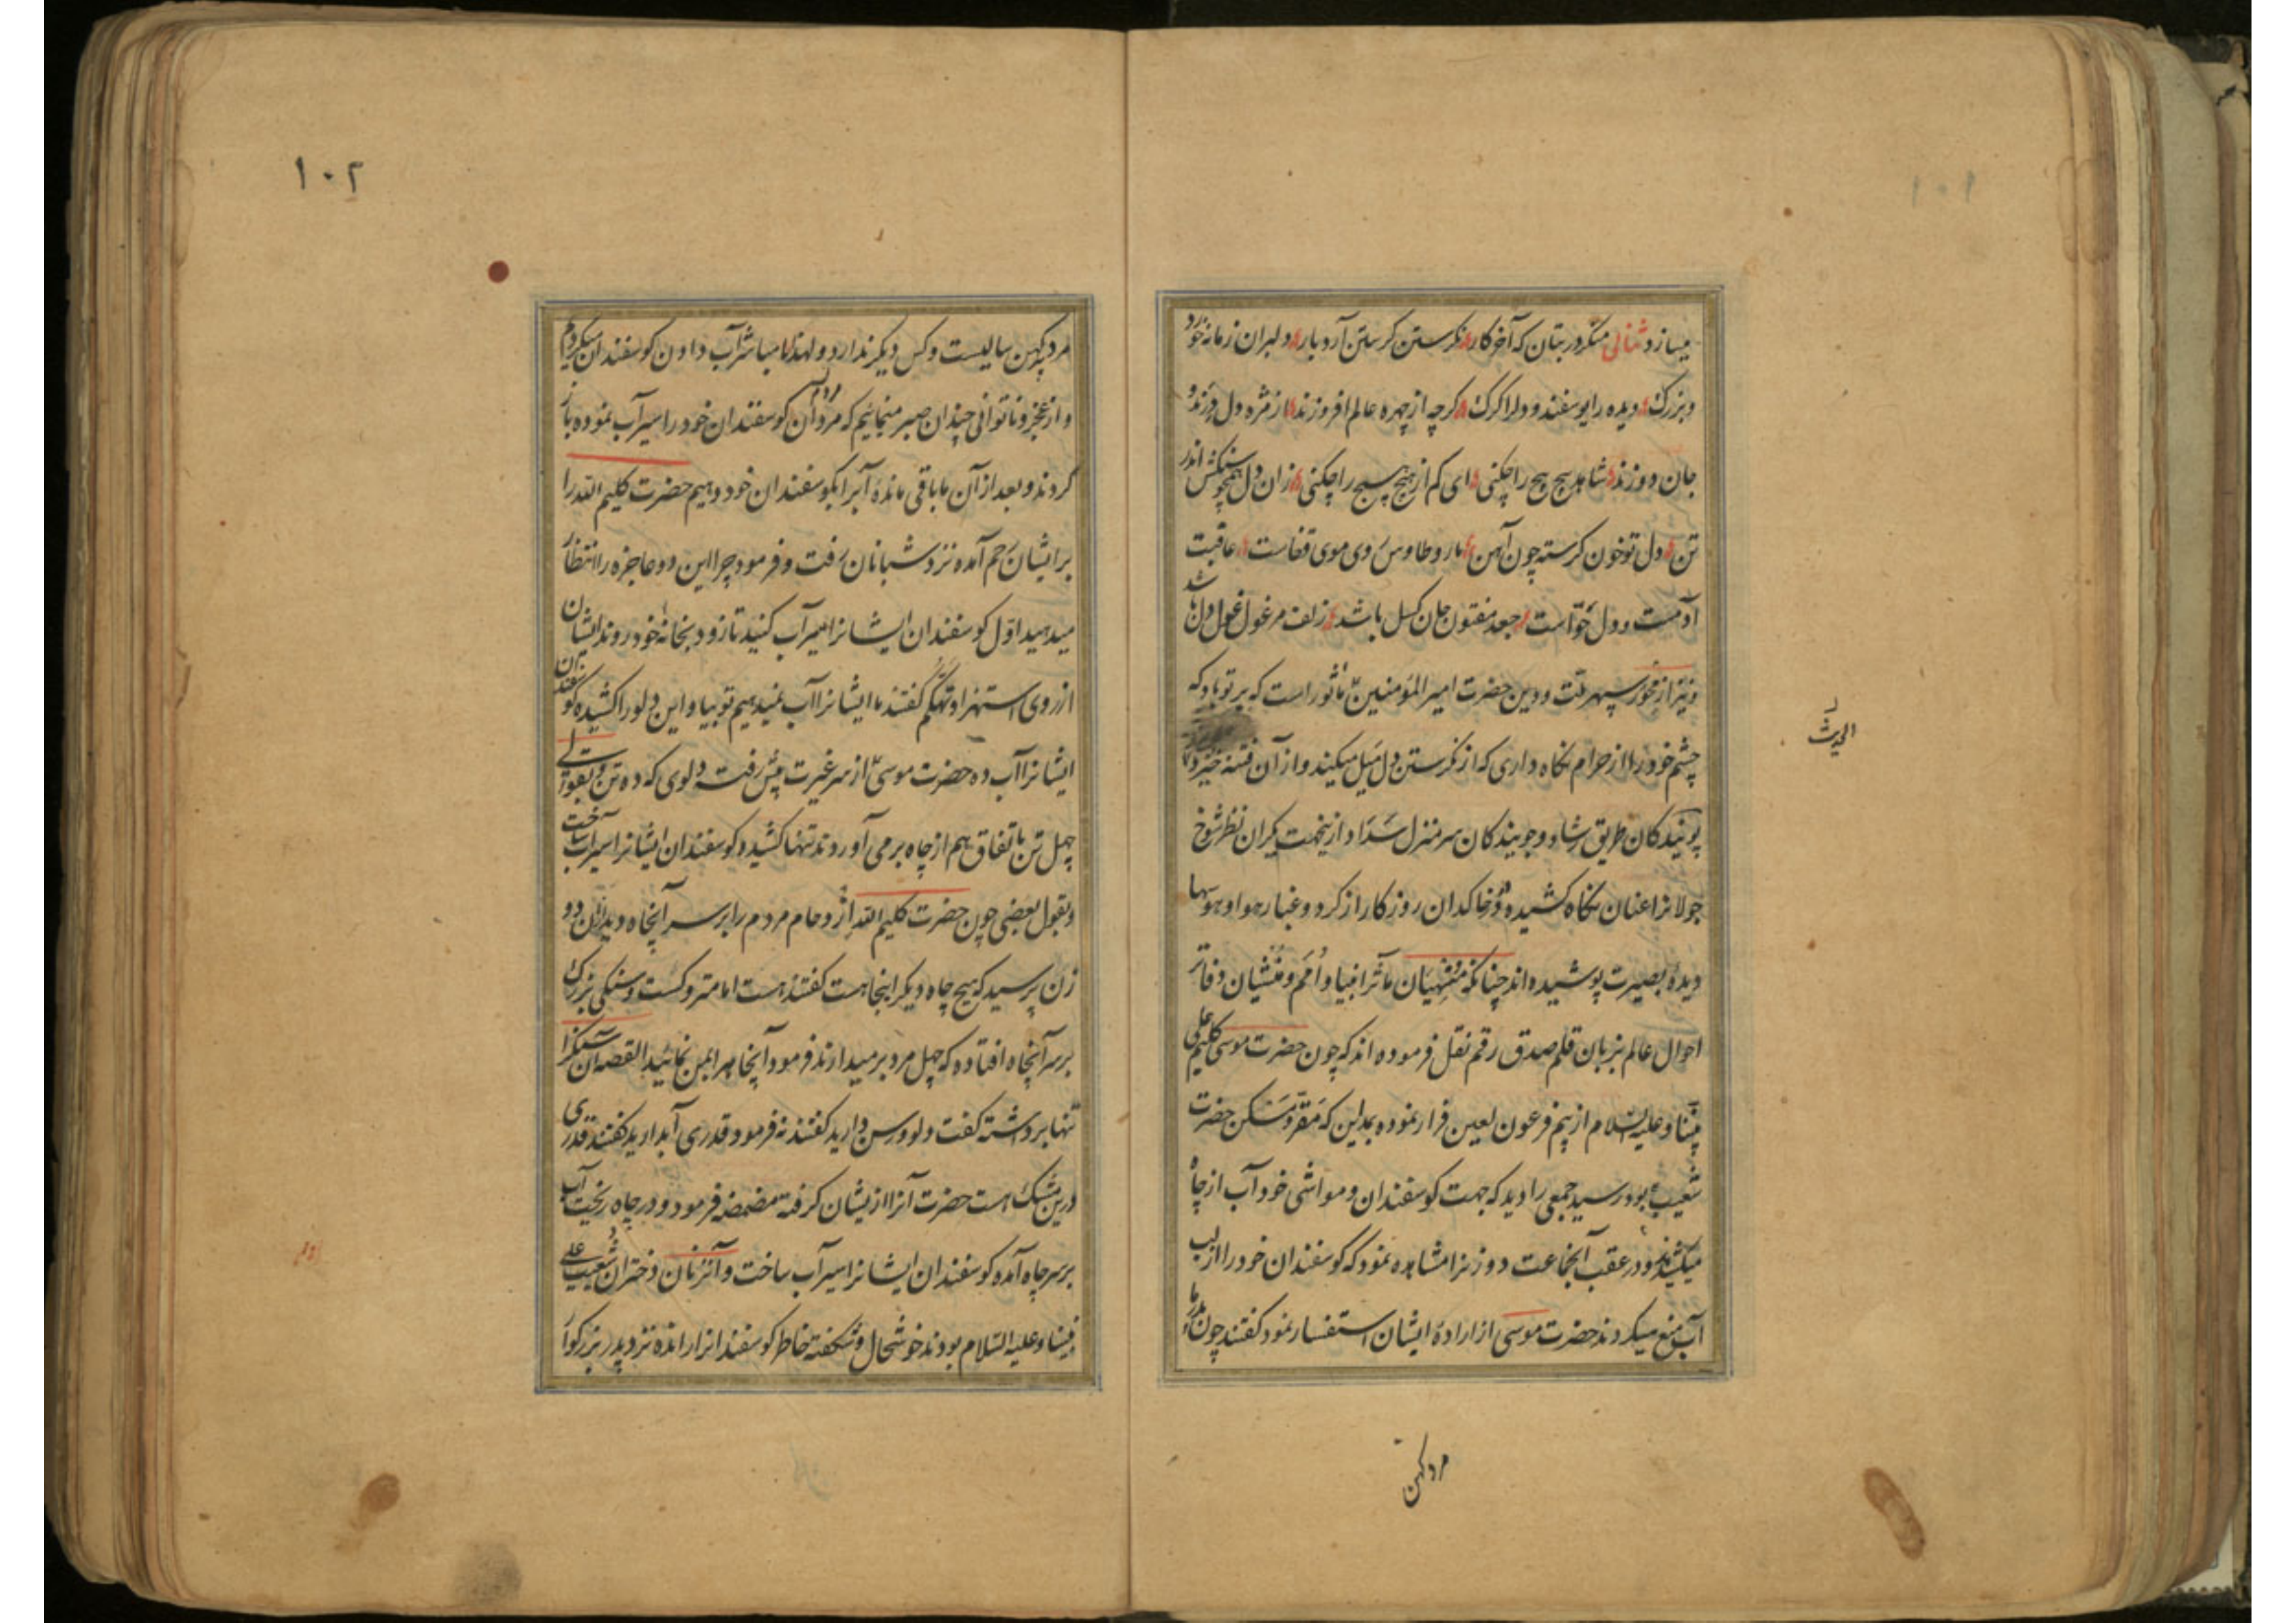 ۱۰۱
میسازد ثنائی منکر در بتان که آخر کار نکرستن کرستن آرد بار دلبران زمانه خورد
و بزرک دیده را یوسفند و دلرا کرک کرچه از چهره عالم افروزند از مژه دل درند و
جان دوزند شاهد پیچ پیچ را چکنی ای کم از هیچ هیچ را چکنی زان دل همچو سنکش اندر
تن دل تو خون کرسته چون آهن مار و طاوس روی و موی قفاست عاقبت
آدمست و دل حوّاست جعد مفتون جان کسل باشد زلف مرغول غول دل باشد
و نیز از محور سپهر ملت و دین حضرت امیر المؤمنین ماثور است که بر تو باد که
چشم خود را از حرام نکاه داری که از نکرستن دل میل میکند و از آن فتنه خیزد
پویندکان طریق رشاد و جویندکان سرمنزل سداد ازینجهت یکران نظر شوخ
جولانرا عنان نکاه کشیده در خاکدان روزکار از کرد و غبار هوا و هوسها
دیدهٔ بصیرت پوشیده اند چنانکه منهیان مآثر انبیا و امم و منشیان دفاتر
احوال عالم بزبان قلم صدق رقم نقل فرموده اند که چون حضرت موسی کلیم علی
نبینا و علیه السلام از بیم فرعون لعین فرار نموده بمداین که مقرّ و مسکن حضرت
شعیب بود رسید جمعی را دید که جهت کوسفندان و مواشی خود آب از چاه
میکشیدند و در عقب آنجماعت دو زنرا مشاهده نمود که کوسفندان خود را از لب
آب منع میکردند حضرت موسی از ارادهٔ ایشان استفسار نمود کفتند چون پدر ما
الحدیث
مرد کهن
۱۰۲
مرد کهن سالیست و کس دیکر ندارد و لهذا ما مباشر آب دادن کوسفندان میکردیم
و از عجز و ناتوانی چندان صبر مینمائیم که مردمان کوسفندان خود را سیرآب نموده باز
کردند و بعد از آن ما باقی ماندهٔ آبرا بکوسفندان خود دهیم حضرت کلیم الله را
بر ایشان رحم آمده نزد شبانان رفت و فرمود چرا این دو عاجزه را انتظار
میدهید اوّل کوسفندان ایشانرا سیرآب کنید تا زود بخانهٔ خود روند ایشان
از روی استهزا و تهکم کفتند ما ایشانرا آب نمیدهیم تو بیا و این دلو را کشیده کوسفندان
ایشانرا آب ده حضرت موسی از سر غیرت پیش رفت و دلوی که ده تن و بقولی
چهل تن باتفاق هم از چاه برمی آوردند تنها کشید و کوسفندان ایشانرا سیرآب ساخت
و بقول بعضی چون حضرت کلیم الله ازدحام مردم را بر سر آنچاه دید از آن دو
زن پرسید که هیچ چاه دیکر اینجا هست کفتند هست اما متروکست و سنکی بزرک
بر سر آنچاه افتاده که چهل مرد برمیدارند فرمود آنچاه را بمن نمائید القصه آن سنکرا
تنها برداشته کفت دلو و رسن دارید کفتند نه فرمود قدری آب دارید کفتند قدری
درین مشک است حضرت آنرا از ایشان کرفته مضمضه فرمود و در چاه ریخت آب
بر سر چاه آمده کوسفندان ایشانرا سیرآب ساخت و آنزنان دختران شعیب علی
نبینا و علیه السّلام بودند خوشحال و شکفته خاطر کوسفندانرا رانده نزد پدر بزرکوار